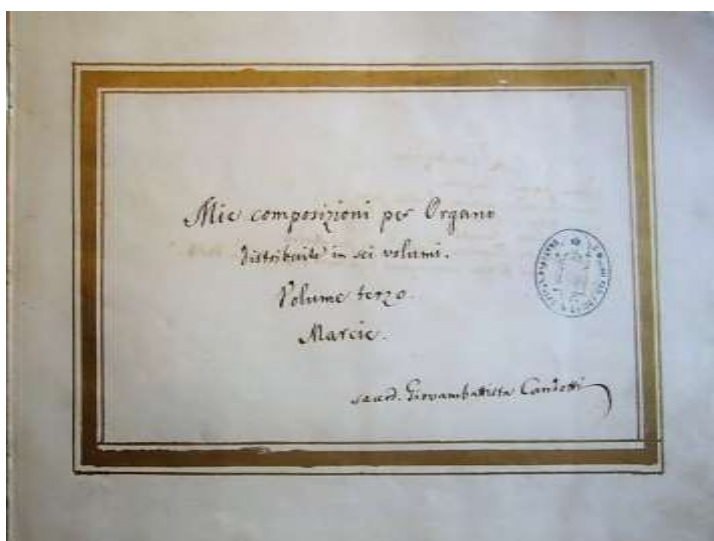 Mie composizioni per Organo
distribuite in sei volumi.
Volume terzo.
Marcie.
sacerd. Giovambattista Candotti